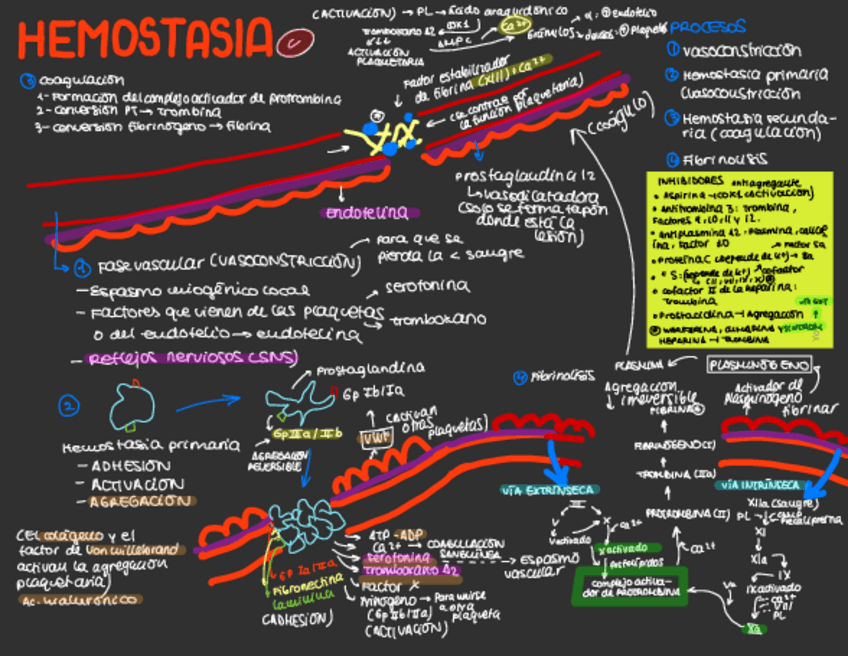 HEMOSTASIA
(ACTIVACIÓN) → PL → Ácido araquidónico
Tromboxano A2 ← COX1
AMPc
Ca+2
ACTIVACIÓN
PLAQUETARIA
Gránulos
PROCESOS
① vasoconstricción
② Hemostasia primaria
(vasoconstricción
③ Hemostasia secunda-
ria (coagulación)
④ Fibrinolisis
③ coagulación
1- Formación del complejo activador de protrombina
2- conversión PT → Trombina
3- conversión fibrinógeno → fibrina
Factor estabilizador
de fibrina (XIII) + Ca+2
(se contrae por
la función plaquetaria)
(coágulo)
Prostaglandina I2
↳ vasodilatadora
(solo se forma tapón
donde está la
lesión)
endotelina
INHIBIDORES antiagregante
• Aspirina → (COX1 (activación)
• Antitrombina 3: Trombina,
Factores 9, 10, 11 y 12.
• Proteína C
cofactor
• cofactor II de la heparina:
Trombina
• Prostaciclina → Agregación
HEPARINA → TROMBINA
① Fase vascular (VASOCONSTRICCIÓN)
para que se
pierda la < sangre
- Espasmo miogénico local
- Factores que vienen de las plaquetas
serotonina
tromboxano
o del endotelio → endotelina
- Reflejos nerviosos (SNS)
②
Prostaglandina
Gp Ib/Ia
Gp IIa/IIb
AGREGACIÓN
REVERSIBLE
VWF
(activan
otras
plaquetas)
Hemostasia primaria
- ADHESIÓN
- ACTIVACIÓN
- AGREGACIÓN
(EL colágeno y el
factor de Von willebrand
activan la agregación
plaquetaria)
Ac. hialurónico
Gp Ia/IIa
Fibronectina
Laminina
(ADHESIÓN)
ATP - ADP
Ca+2 → COAGULACIÓN
SANGUÍNEA
serotonina
tromboxano A2
Espasmo
vascular
Factor X
Para unirse
a otra
plaqueta
(Gp IIb/IIIa)
(ACTIVACIÓN)
④ Fibrinolisis
PLASMINA
PLASMINÓGENO
Agregación
irreversible
Activador de
Plasminógeno
fibrinar
FIBRINA
FIBRINÓGENO (I)
TROMBINA (IIa)
PROTROMBINA (II)
Ca+2
VÍA EXTRÍNSECA
V
X
Ca+2
V activado
X activado
fosfolípidos
complejo activa-
dor de PROTROMBINA
VÍA INTRÍNSECA
XIIa (sangre)
PL
XI
XIa
IX
IX activado
Ca+2
VIII
PL
Va
Xa